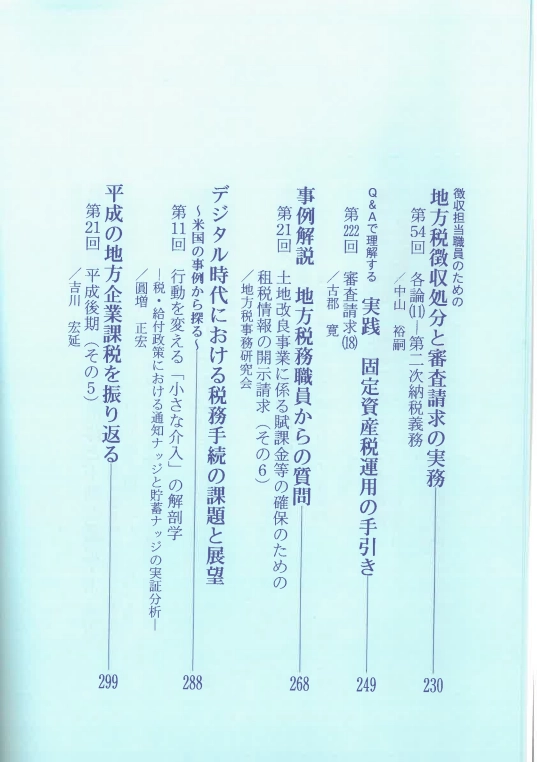 徴収担当職員のための
地方税徴収処分と審査請求の実務 230
第54回 各論⑾―第二次納税義務
／中山 裕嗣
Q&Aで理解する 実践 固定資産税運用の手引き 249
第222回 審査請求⒅
／古郡 寛
事例解説 地方税務職員からの質問 268
第21回 土地改良事業に係る賦課金等の確保のための
租税情報の開示請求（その6）
／地方税事務研究会
デジタル時代における税務手続の課題と展望
～米国の事例から探る～ 288
第11回 行動を変える「小さな介入」の解剖学
―税・給付政策における通知ナッジと貯蓄ナッジの実証分析―
／圓増 正宏
平成の地方企業課税を振り返る 299
第21回 平成後期（その5）
／吉川 宏延